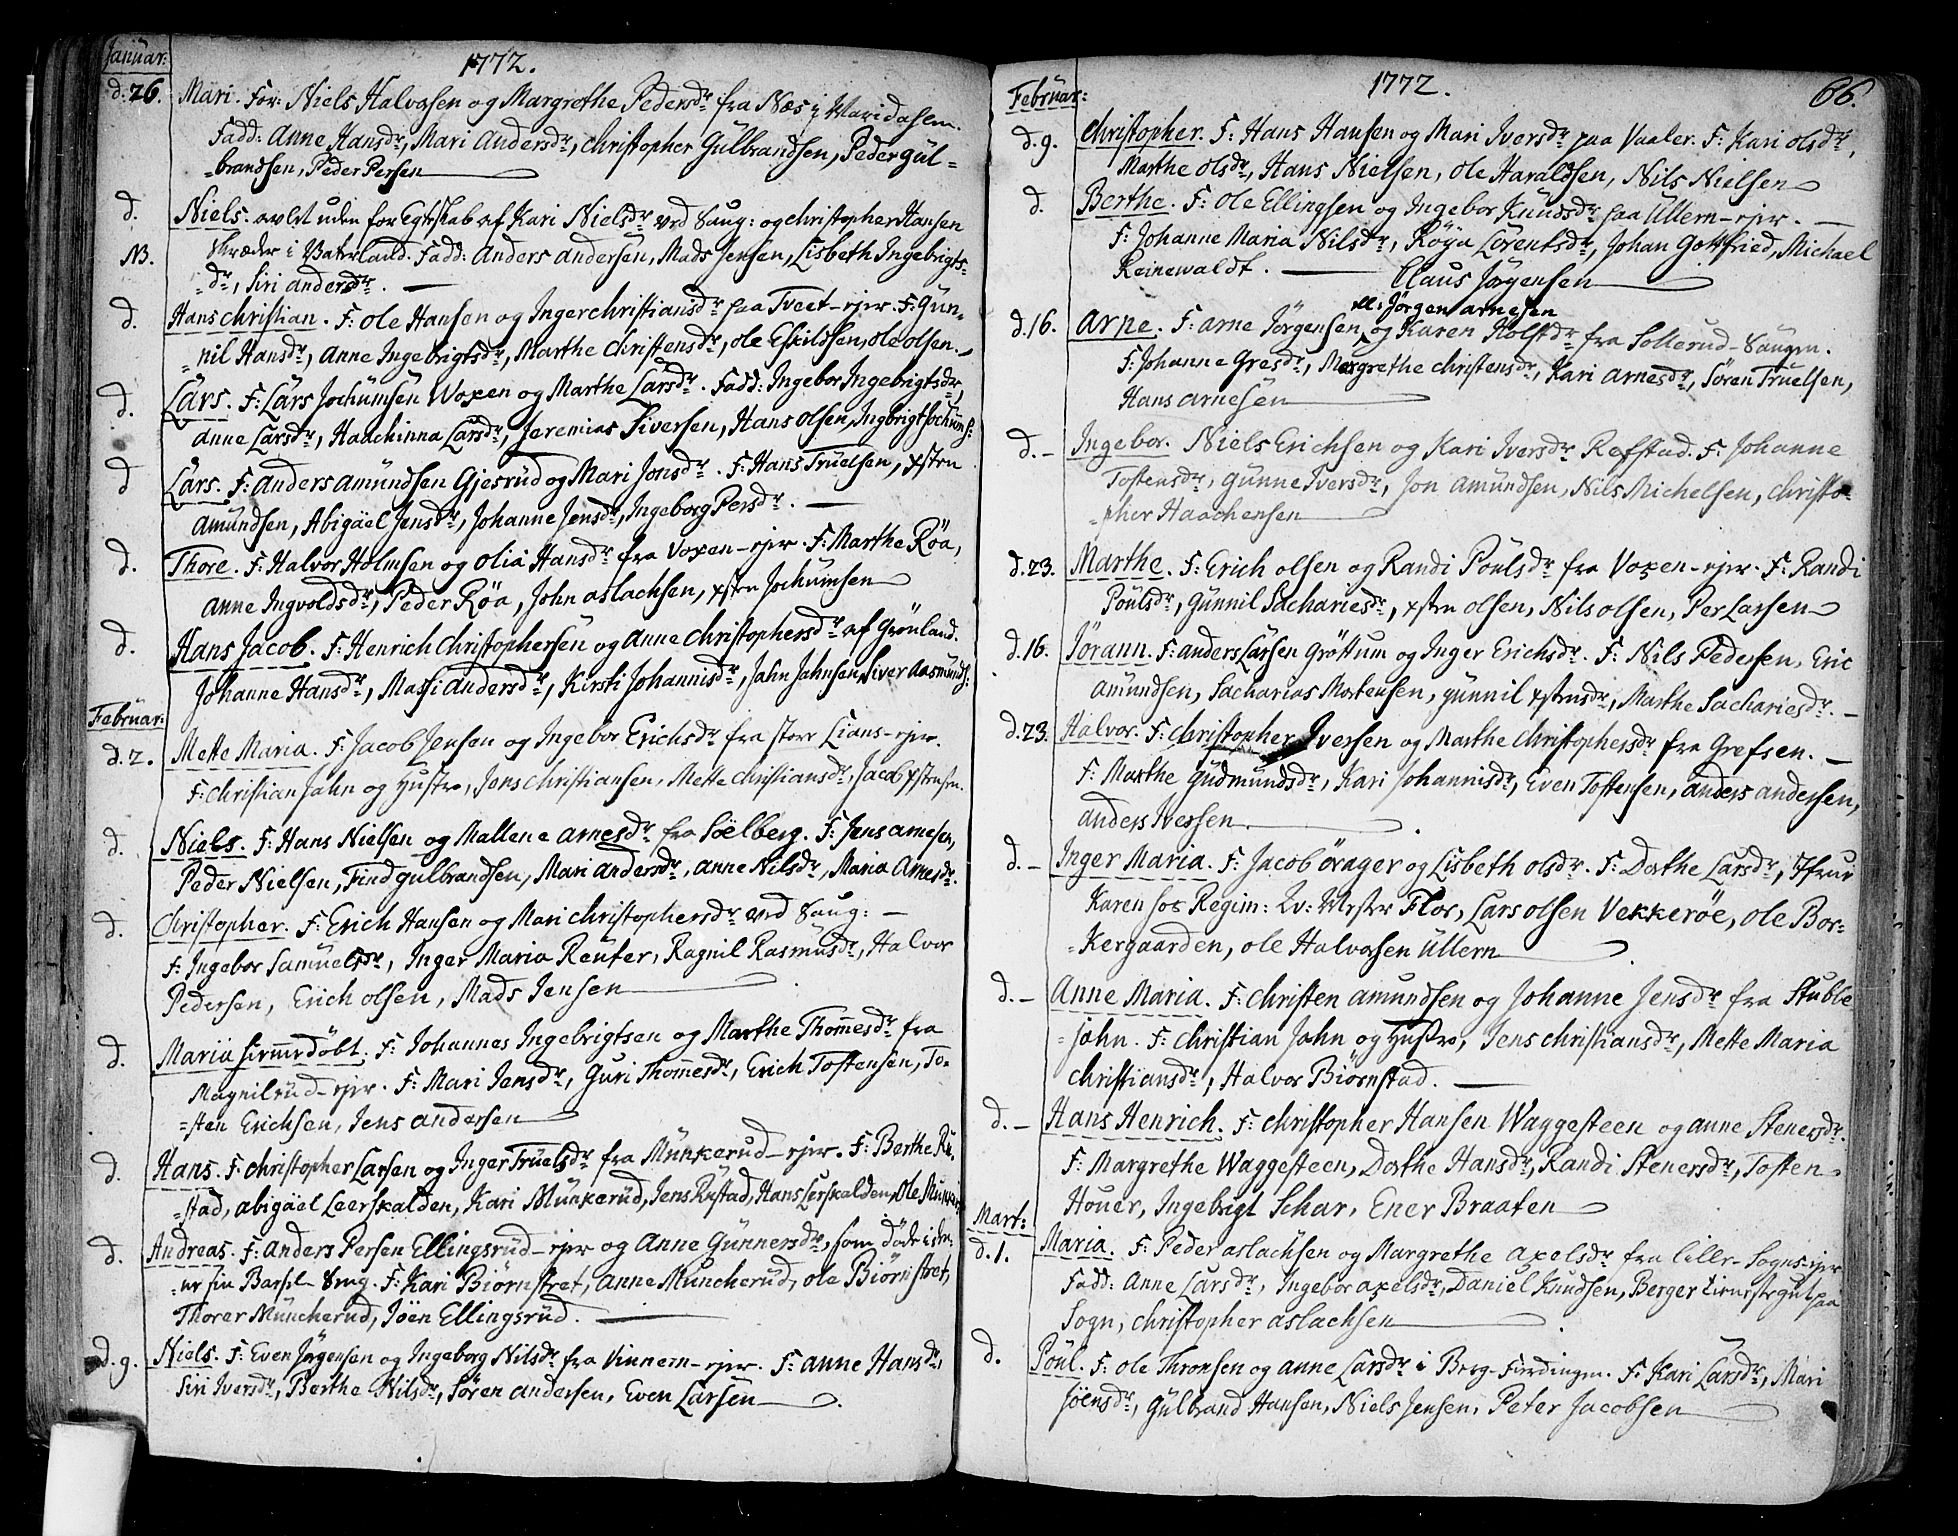 Januar:
1772.
d. 26. Mari. For: Niels Halvorsen og Margrethe Pedersdr fra Næs i Maridalen.
Fadd: Anne Hansdr, Mari Andersdr, Christopher Gülbrandsen, Peder Gül-
-brandsen, Peder Persen
d. Niels. avlet uden for Egteskab af Kari Nielsdr ved Saug: og Christopher Hansen
NB. Skræder i Vaterland. Fadd: Anders Andersen, Mads Jensen, Lisbeth Ingebrigts-
-dr, Siri Andersdr.
d. Hans Christian. F: Ole Hansen og Inger Christiansdr paa Tveet-ejer. F: Gün-
-nil Hansdr, Anne Ingebrigtsdr, Marthe Christensdr, Ole Eskildsen, Ole Olsen.
d. Lars. F: Lars Jochumsen Woxen og Marthe Larsdr. Fadd: Ingebor Ingebrigtsdr,
Anne Larsdr, Haachinna Larsdr, Jeremias Siversen, Hans Olsen, Ingbrigt Jochums:
d Lars. F: Anders Amündsen Gjesrüd og Mari Jonsdr. F: Hans Truelsen, Xsten
Amündsen, Abigäel Jensdr, Johanne Jensdr, Ingeborg Persdr.
d. Thore. F: Halvor Holmsen og Olia Hansdr fra Voxen-ejer. F: Marthe Röa,
Anne Ingvoldsdr, Peder Röa, John Aslachsen, Xsten Jochümsen
d. Hans Jacob. F: Henrich Christophersen og Anne Christophersdr af Grönland.
Johanne Hansdr, Mari Andersdr, Kirsti Johannisdr, Jahn Jahnsen, Siver Aasmunds:
Februar:
d. 2. Mette Maria. F: Jacob Jensen og Ingebor Erichsdr fra store Lians-ejer.
F: Christian Jahn og Hustro, Jens Christiansen, Mette Christiansdr, Jacob Xstensen.
d. Niels. F: Hans Nielsen og Mallene Arnesdr fra Sölberg. F: Jens Arnesen,
Peder Nielsen, Find Gulbrandsen, Mari Andersdr, Anne Nilsdr, Maria Arnesdr.
d. Christopher. F: Erich Hansen og Mari Christophersdr ved Saug: —
F: Ingebor Samuelsdr, Inger Maria Reuter, Ragnil Rasmusdr, Halvor
Pedersen, Erich Olsen, Mads Jensen
d. Maria hiemedöbt. F: Johannes Ingebrigtsen og Marthe Thomesdr fra
Magnilrüd-ejer. F: Mari Jensdr, Guri Thomesdr, Erich Tostensen, To-
-sten Erichsen, Jens Andersen
d. Hans. F: Christopher Larsen og Inger Truelsdr fra Münkerud-ejer. F: Berthe Ru-
-stad, Abigäel Leerskalden, Kari Münkerüd, Jens Rustad, Hans Lerskalden, Ole Munkerü
d. Andreas. F: Anders Persen Ellingsrüd-ejer og Anne Günnersdr, som döde i den-
-ne sin Barsel Seng. F: Kari Biörnstret, Anne Muncherud, Ole Biörnstret,
Thorer Müncherud, Jöen Ellingsrüd.
d. 9. Niels. F: Even Jörgensen og Ingeborg Nilsdr fra Vinnern-ejer. F: Anne Hansdr,
Siri Iversdr, Berthe Nilsdr, Sören Andersen, Even Larsen
1772.
66.
Februar:
d. 9. Christopher. F: Hans Hansen og Mari Iversdr paa Vaaler. F: Kari Olsdr,
Marthe Olsdr, Hans Nielsen, Ole Haraldsen, Nils Nielsen
d. Berthe. F: Ole Ellingsen og Ingebor Knudsdr paa Ullern-ejer. —
F: Johanne Maria Nilsdr, Röya Lorentsdr, Johan Gottfried, Michael
Reinewaldt. — Claus Jörgensen
al: Jörgen Arnesen
d. 16. Arne. F: Arne Jörgensen, og Karen Holstdr fra Sollerud-Saugen.
F: Johanne Gresdr, Margrethe Christensdr, Kari Arnesdr, Sören Truelsen,
Hans Arnesen
d. — Ingebor. Niels Erichsen og Kari Iversdr Refstad. F: Johanne
Tostensdr, Gunne Iversdr, Jon Amündsen, Nils Michelsen, Christo-
-pher Haachensen
d. 23. Marthe. F: Erich Olsen og Randi Poulsdr fra Voxen-ejer. F: Randi
Poulsdr, Günnil Sachariesdr, Xsten Olsen, Nils Olsen, Per Larsen
d. 16. Jörann. F: Anders Larsen Gröttum og Inger Erichsdr. F: Nils Pedersen, Eric
Amündsen, Sacharias Mortensen, Günnil Xstensdr, Marthe Sachariesdr. —
d. 23. Halvor. F: Christopher Iversen og Marthe Christophersdr fra Grefsen. —
F: Marthe Gudmundsdr, Kari Johannisdr, Even Tostensen, Anders Andersen,
Anders Iversen.
d. — Inger Maria. F: Jacob Örager og Lisbeth Olsdr. F: Dorthe Larsdr, Jfrue
Karen hos Regim: Qv: Mester Flor, Lars Olsen Vekkeröe, Ole Bor-
-kergaarden, Ole Halvorsen Ullern
d. — Anne Maria. F: Christen Amundsen og Johanne Jensdr fra Stuble
-john. F: Christian Jahn og Hustro, Jens Christiansdr, Mette Maria
Christiansdr, Halvor Biörnstad. —
d. — Hans Henrich. F: Christopher Hansen Waggesteen og Anne Stenersdr.
F: Margrethe Waggesteen, Dorthe Hansdr, Randi Stenersdr, Tosten
Houer, Ingebrigt Schar, Ener Braaten
Mart:
d. 1. Maria. F: Peder Aslachsen og Margrethe Axelsdr fra lille-Sogns-ejer
Fadd: Anne Larsdr, Ingebor Axelsdr, Daniel Knudsen, Berger tienestegut paa
Sogn, Christopher Aslachsen
d. Poul. F: Ole Thronsen og Anne Larsdr i Berg-Fierdingen. F: Kari Larsdr, Mari
Jöensdr, Gülbrand Hansen, Niels Jensen, Peter Jacobsen